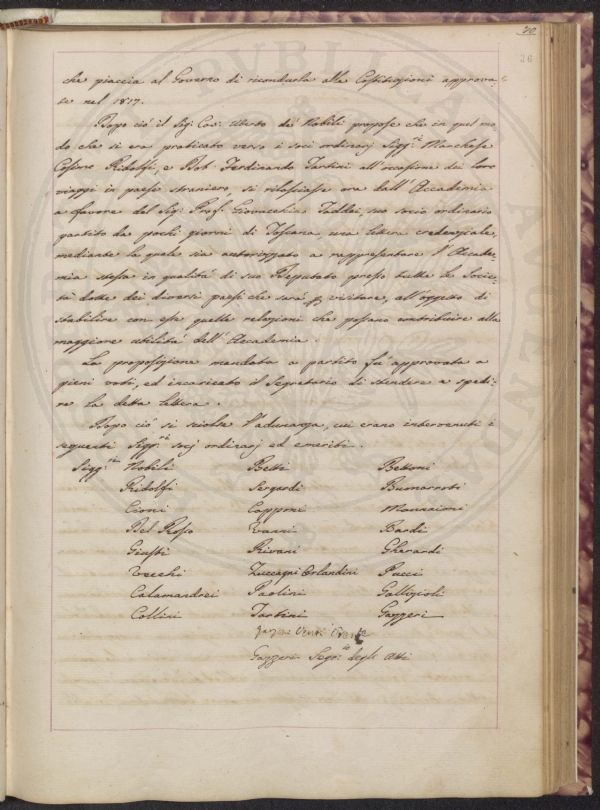 20
26
che piaccia al Governo di ricondurla alla Costituzioni approva-
te nel 1817.
Dopo ciò il Sig. Cav. Uberto de' Nobili propose che in quel mo
do che si era praticato verso i soci ordinarj Sigg.ri Marchese
Cosimo Ridolfi, e Dot. Ferdinando Tartini all'occasione dei loro
viaggi in paese straniero, si rilasciasse ora dall'Accademia
a favore del Sig. Prof. Giovacchino Taddei, suo socio ordinario
partito da pochi giorni di Toscana una lettera credenziale,
mediante la quale sia autorizzato a rappresentare l'Accade-
mia stessa in qualità di suo Deputato presso tutte le Socie-
tà dotte dei diversi paesi che sarà p visitare, all'oggetto di
stabilire con esse quelle relazioni che possano contribuire alla
maggiore utilità dell'Accademia.
La proposizione mandata a partito fu approvata a
pieni voti, ed incaricato il Segretario di stendere e spedi-
re la detta lettera.
Dopo ciò si sciolse l'adunanza, cui erano intervenuti i
seguenti Sigg.ri socj ordinarj ed emeriti.
Sigg.ri Nobili Betti Bettoni
Ridolfi Sergardi Buonarroti
Cioni Capponi Mannaioni
Del Rosso Vanni Bardi
Giusti Rivani Gherardi
Vecchi Zuccagni Orlandini Pucci
Calamandrei Paolini Gallizioli
Collini Tartini Gazzeri
Gazzeri Segr.io degli Atti
PVBLICA
AVGENDA